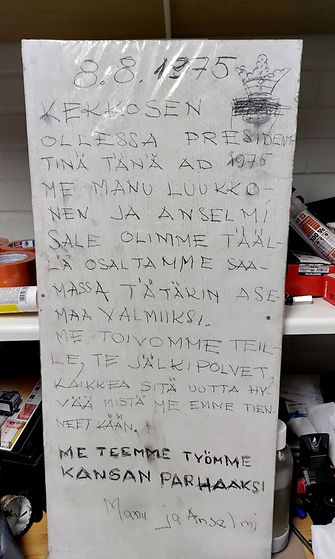 8.8.1975
KEKKOSEN
OLLESSA PRESIDENT
TINÄ TÄNÄ AD 1975
ME MANU LUUKKO-
NEN JA ANSELMI
SALE OLIMME TÄÄL-
LÄ OSALTAMME SAA-
MASSA TÄTÄKIN ASE-
MAA VALMIIKSI.
ME TOIVOMME TEIL-
LE, TE JÄLKIPOLVET
KAIKKEA SITÄ UUTTA HY
VÄÄ MISTÄ ME EMME TIEN
NEET KÄÄN.
ME TEEMME TYÖMME
KANSAN PARHAAKSI
Manu ja Anselmi